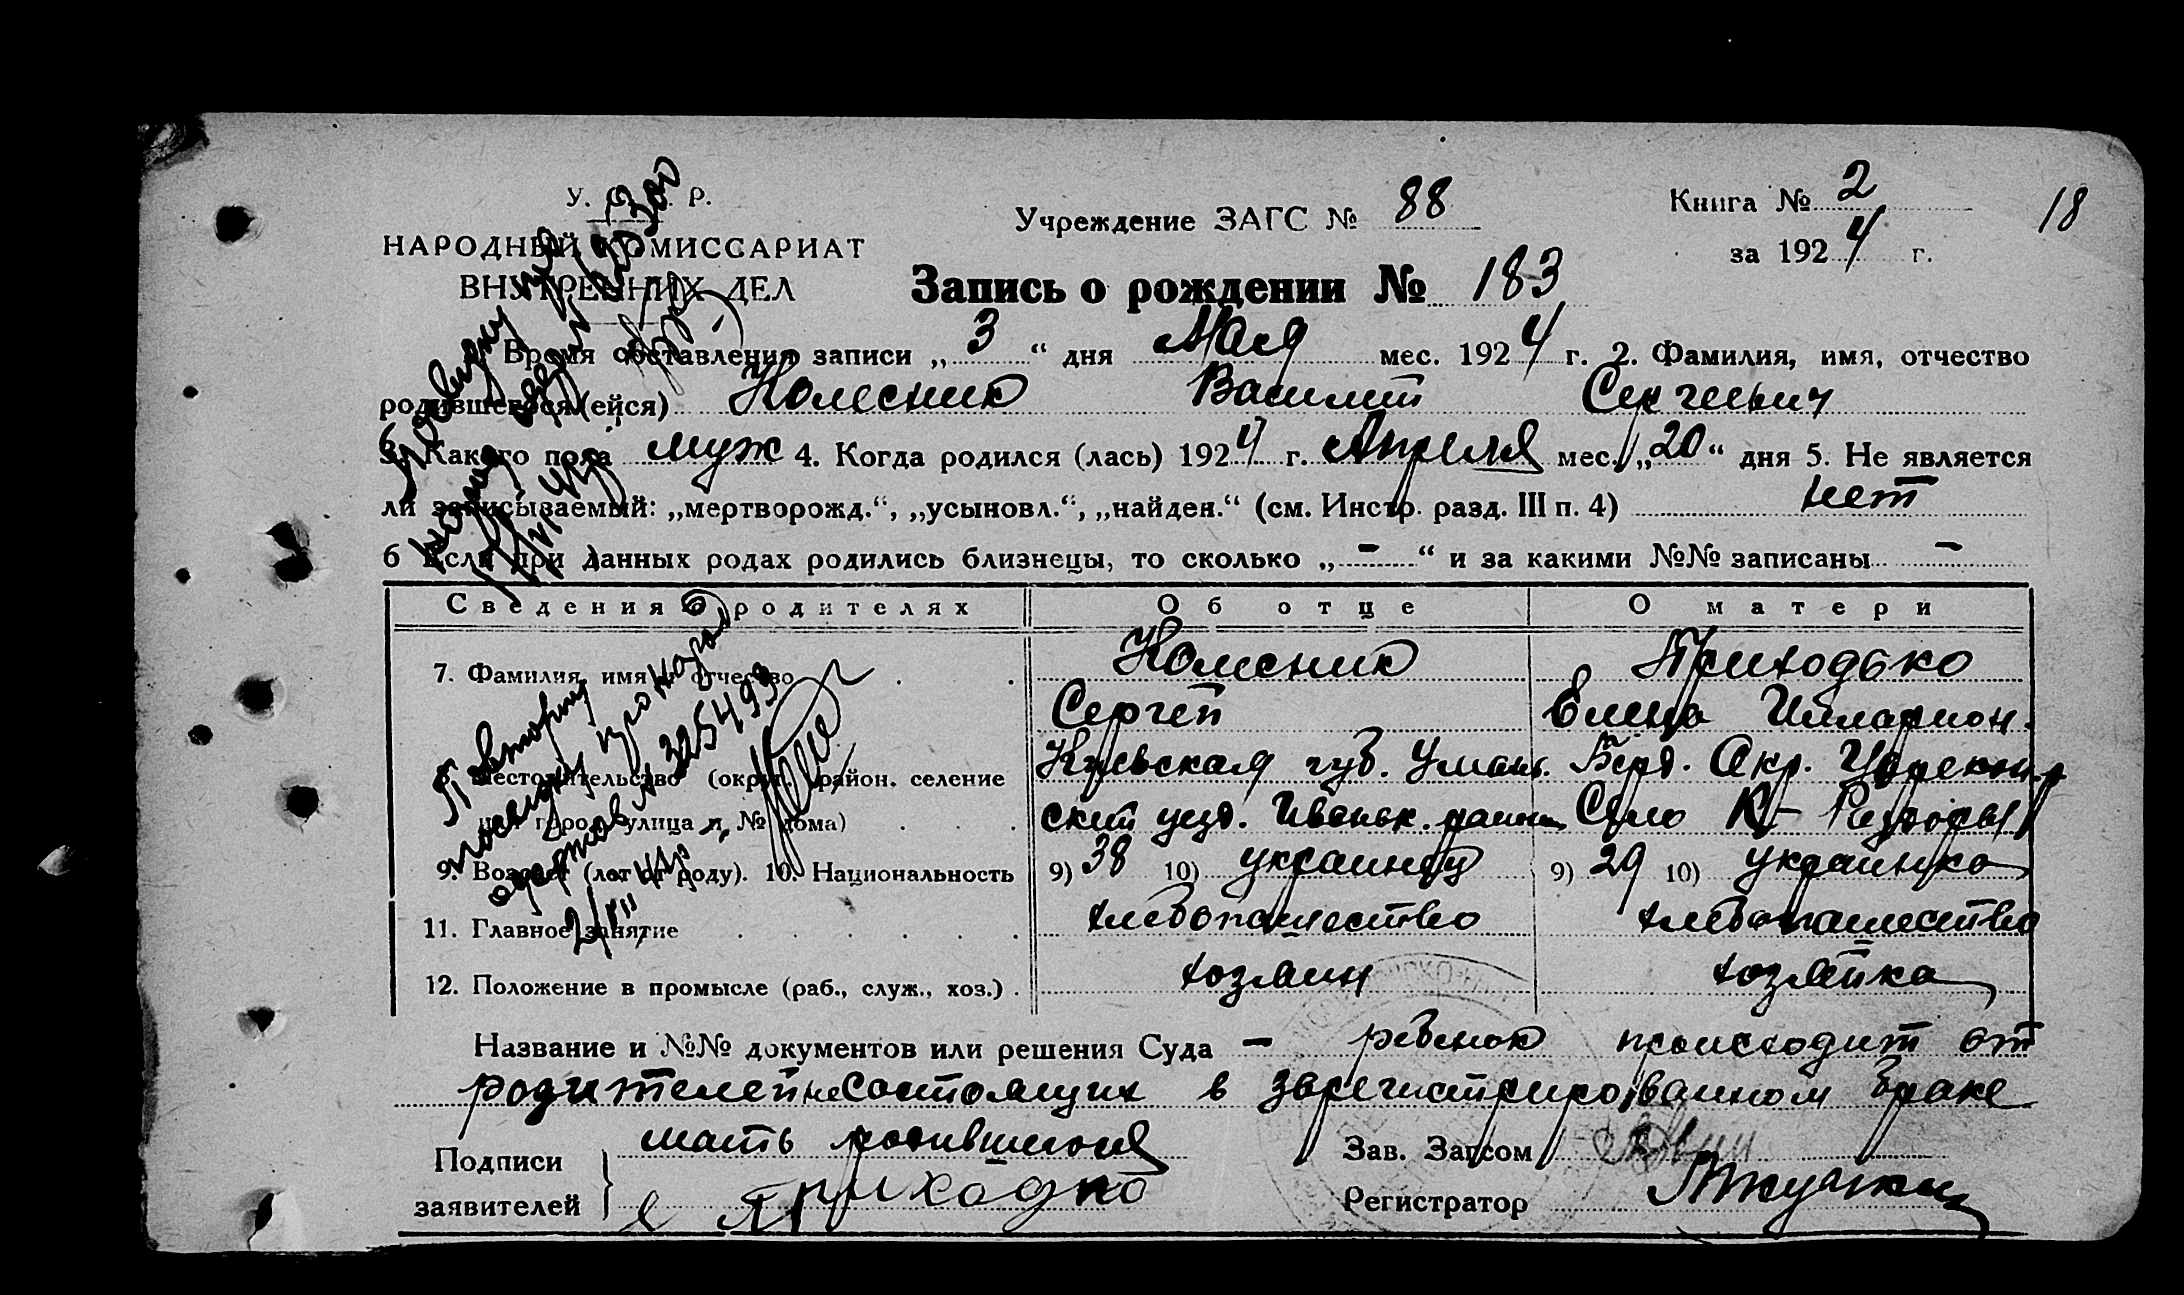 У. С. Р.
НАРОДНЫЙ КОМИССАРИАТ
ВНУТРЕННИХ ДЕЛ
Учреждение ЗАГС № 88
Книга № 2
за 1924 г.
18
Запись о рождении № 183
Время составления записи „3“ дня Мая мес. 1924 г. 2. Фамилия, имя, отчество
родившегося (ейся) Колесник Василий Сергеевич
3. Какого пола муж 4. Когда родился (лась) 1924 г. Апреля мес. „20“ дня 5. Не является
ли записываемый: „мертворожд.“, „усыновл.“, „найден.“ (см. Инстр. разд. III п. 4) нет
6 Если при данных родах родились близнецы, то сколько „-“ и за какими №№ записаны -
Сведения о родителях Об отце О матери
7. Фамилия, имя и отчество Колесник Приходько
Сергей Елена Илларион.
8. Местожительство (округ, район, селение Киевская губ. Уман. Берд. Окр.
или город, улица и № дома) ский уезд. Ивоньк. район Село
9. Возраст (лет от роду). 10. Национальность 9) 38 10) украинец 9) 29 10) украинка
11. Главное занятие хлебопашество хлебопашество
12. Положение в промысле (раб., служ., хоз.) хозяин хозяйка
Название и №№ документов или решения Суда - ребенок происходит от
родителей не состоящих в зарегистрированном браке
Подписи мать родившегося Зав. Загсом
заявителей Е Приходко Регистратор
Повторну
№ 325493